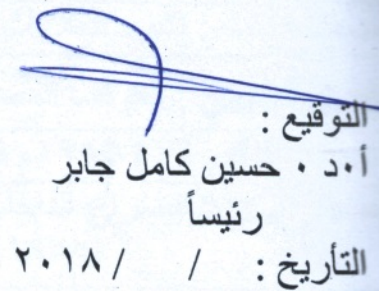 التوقيع :
أ٠د ٠ حسين كامل جابر
رئيساً
التأريخ : / / ٢٠١٨